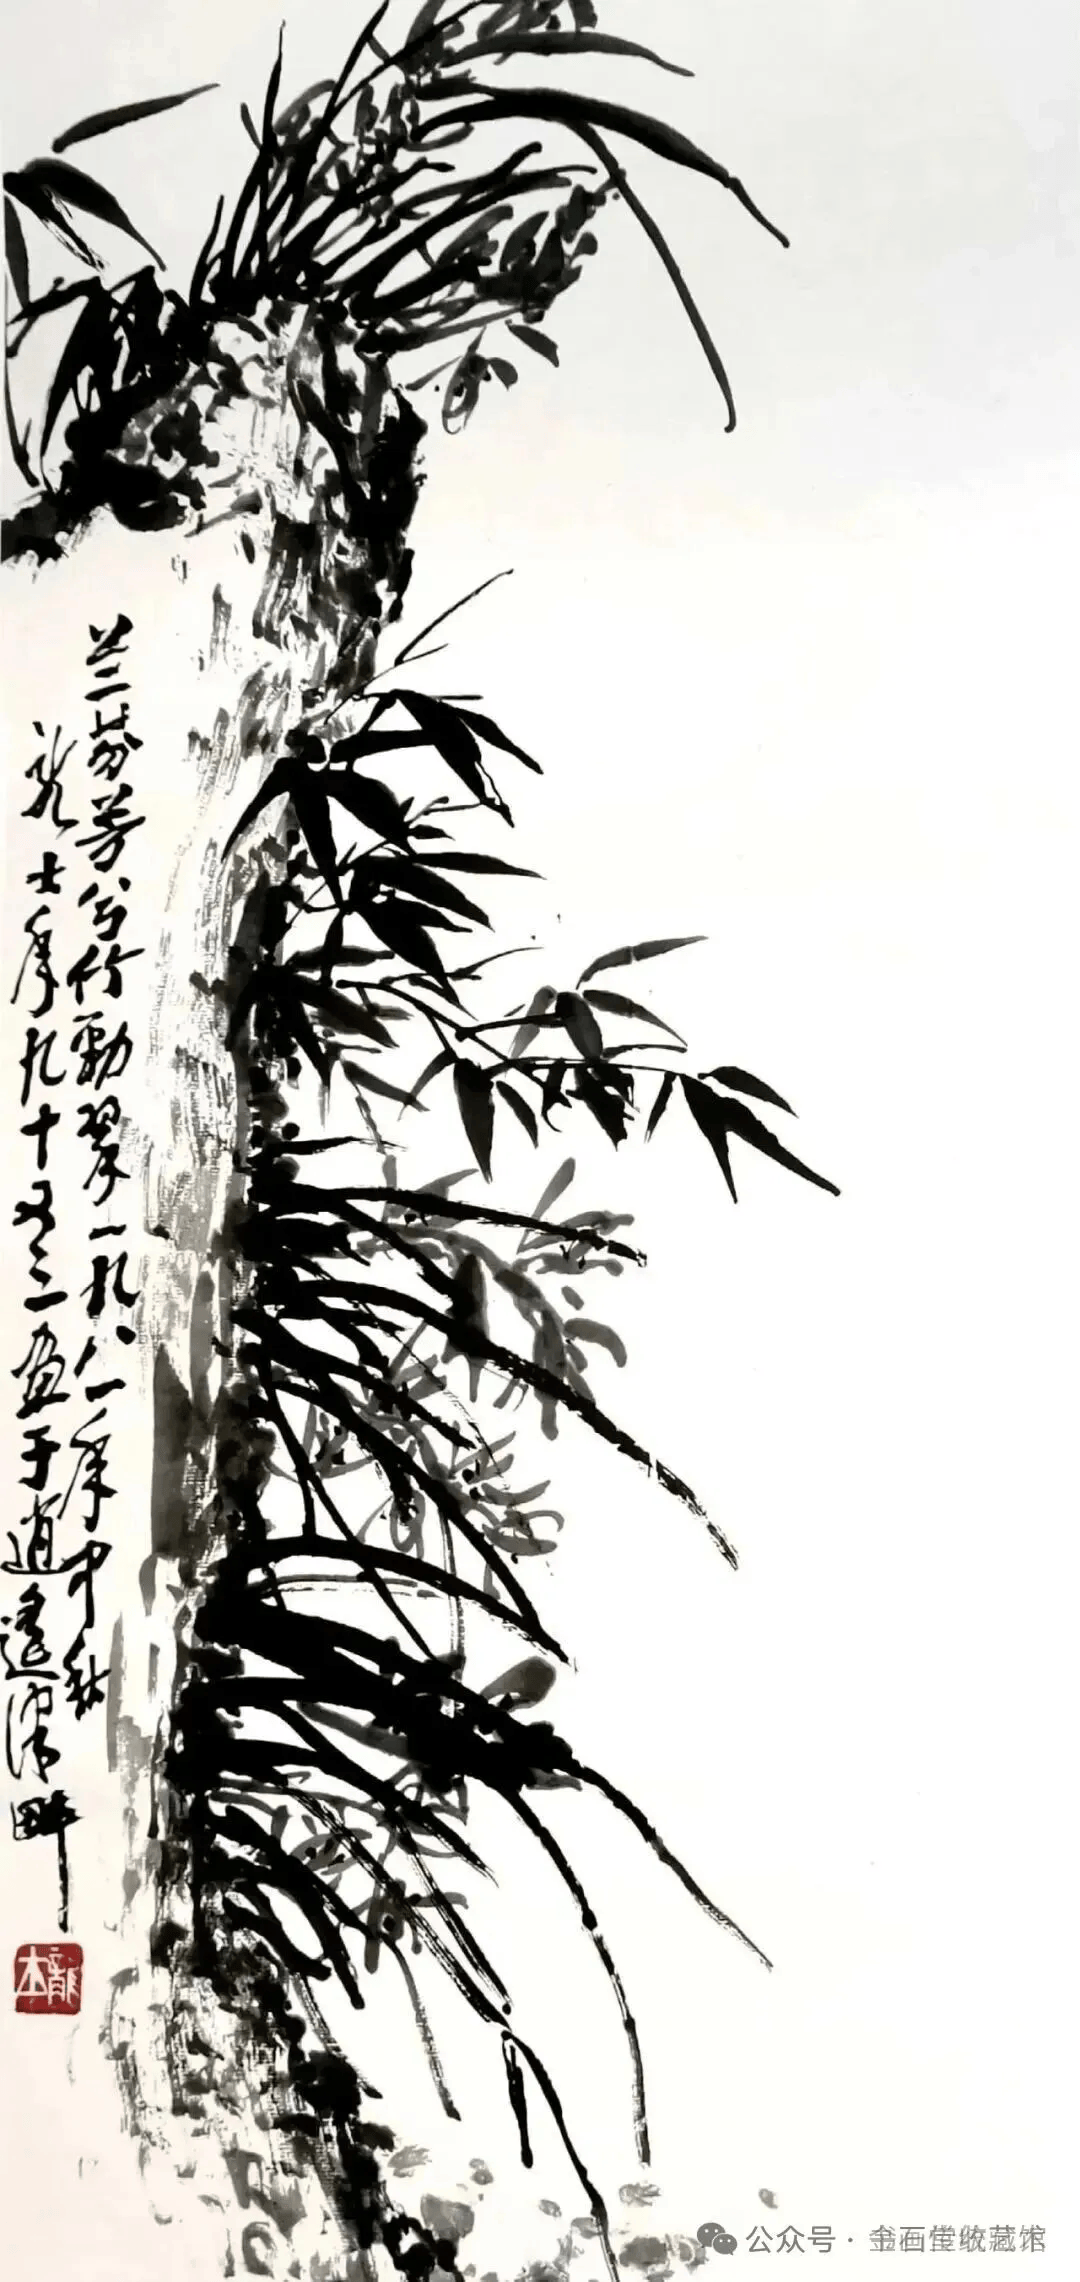 兰芬芳兮竹劲翠一九八一年中秋
龙士年九十又二画于逍遥津畔
龍士
公众号·金石佳收藏馆